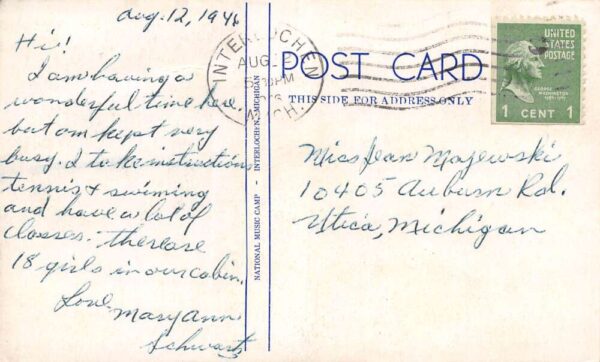 Aug. 12, 1946
Hi!
I am having a
wonderful time here
but am kept very
busy. I take instructions
tennis & swiming
and have a lot of
classes. There are
18 girls in our cabin.
Love
Mary Ann
Schwartz
NATIONAL MUSIC CAMP - INTERLOCHEN, MICHIGAN
INTERLOCHEN
AUG
PM
MICH.
POST CARD
THIS SIDE FOR ADDRESS ONLY
UNITED
STATES
POSTAGE
GEORGE
WASHINGTON
1789-1797
1 CENT 1
Miss Jean Majewski
10405 Auburn Rd.
Utica, Michigan